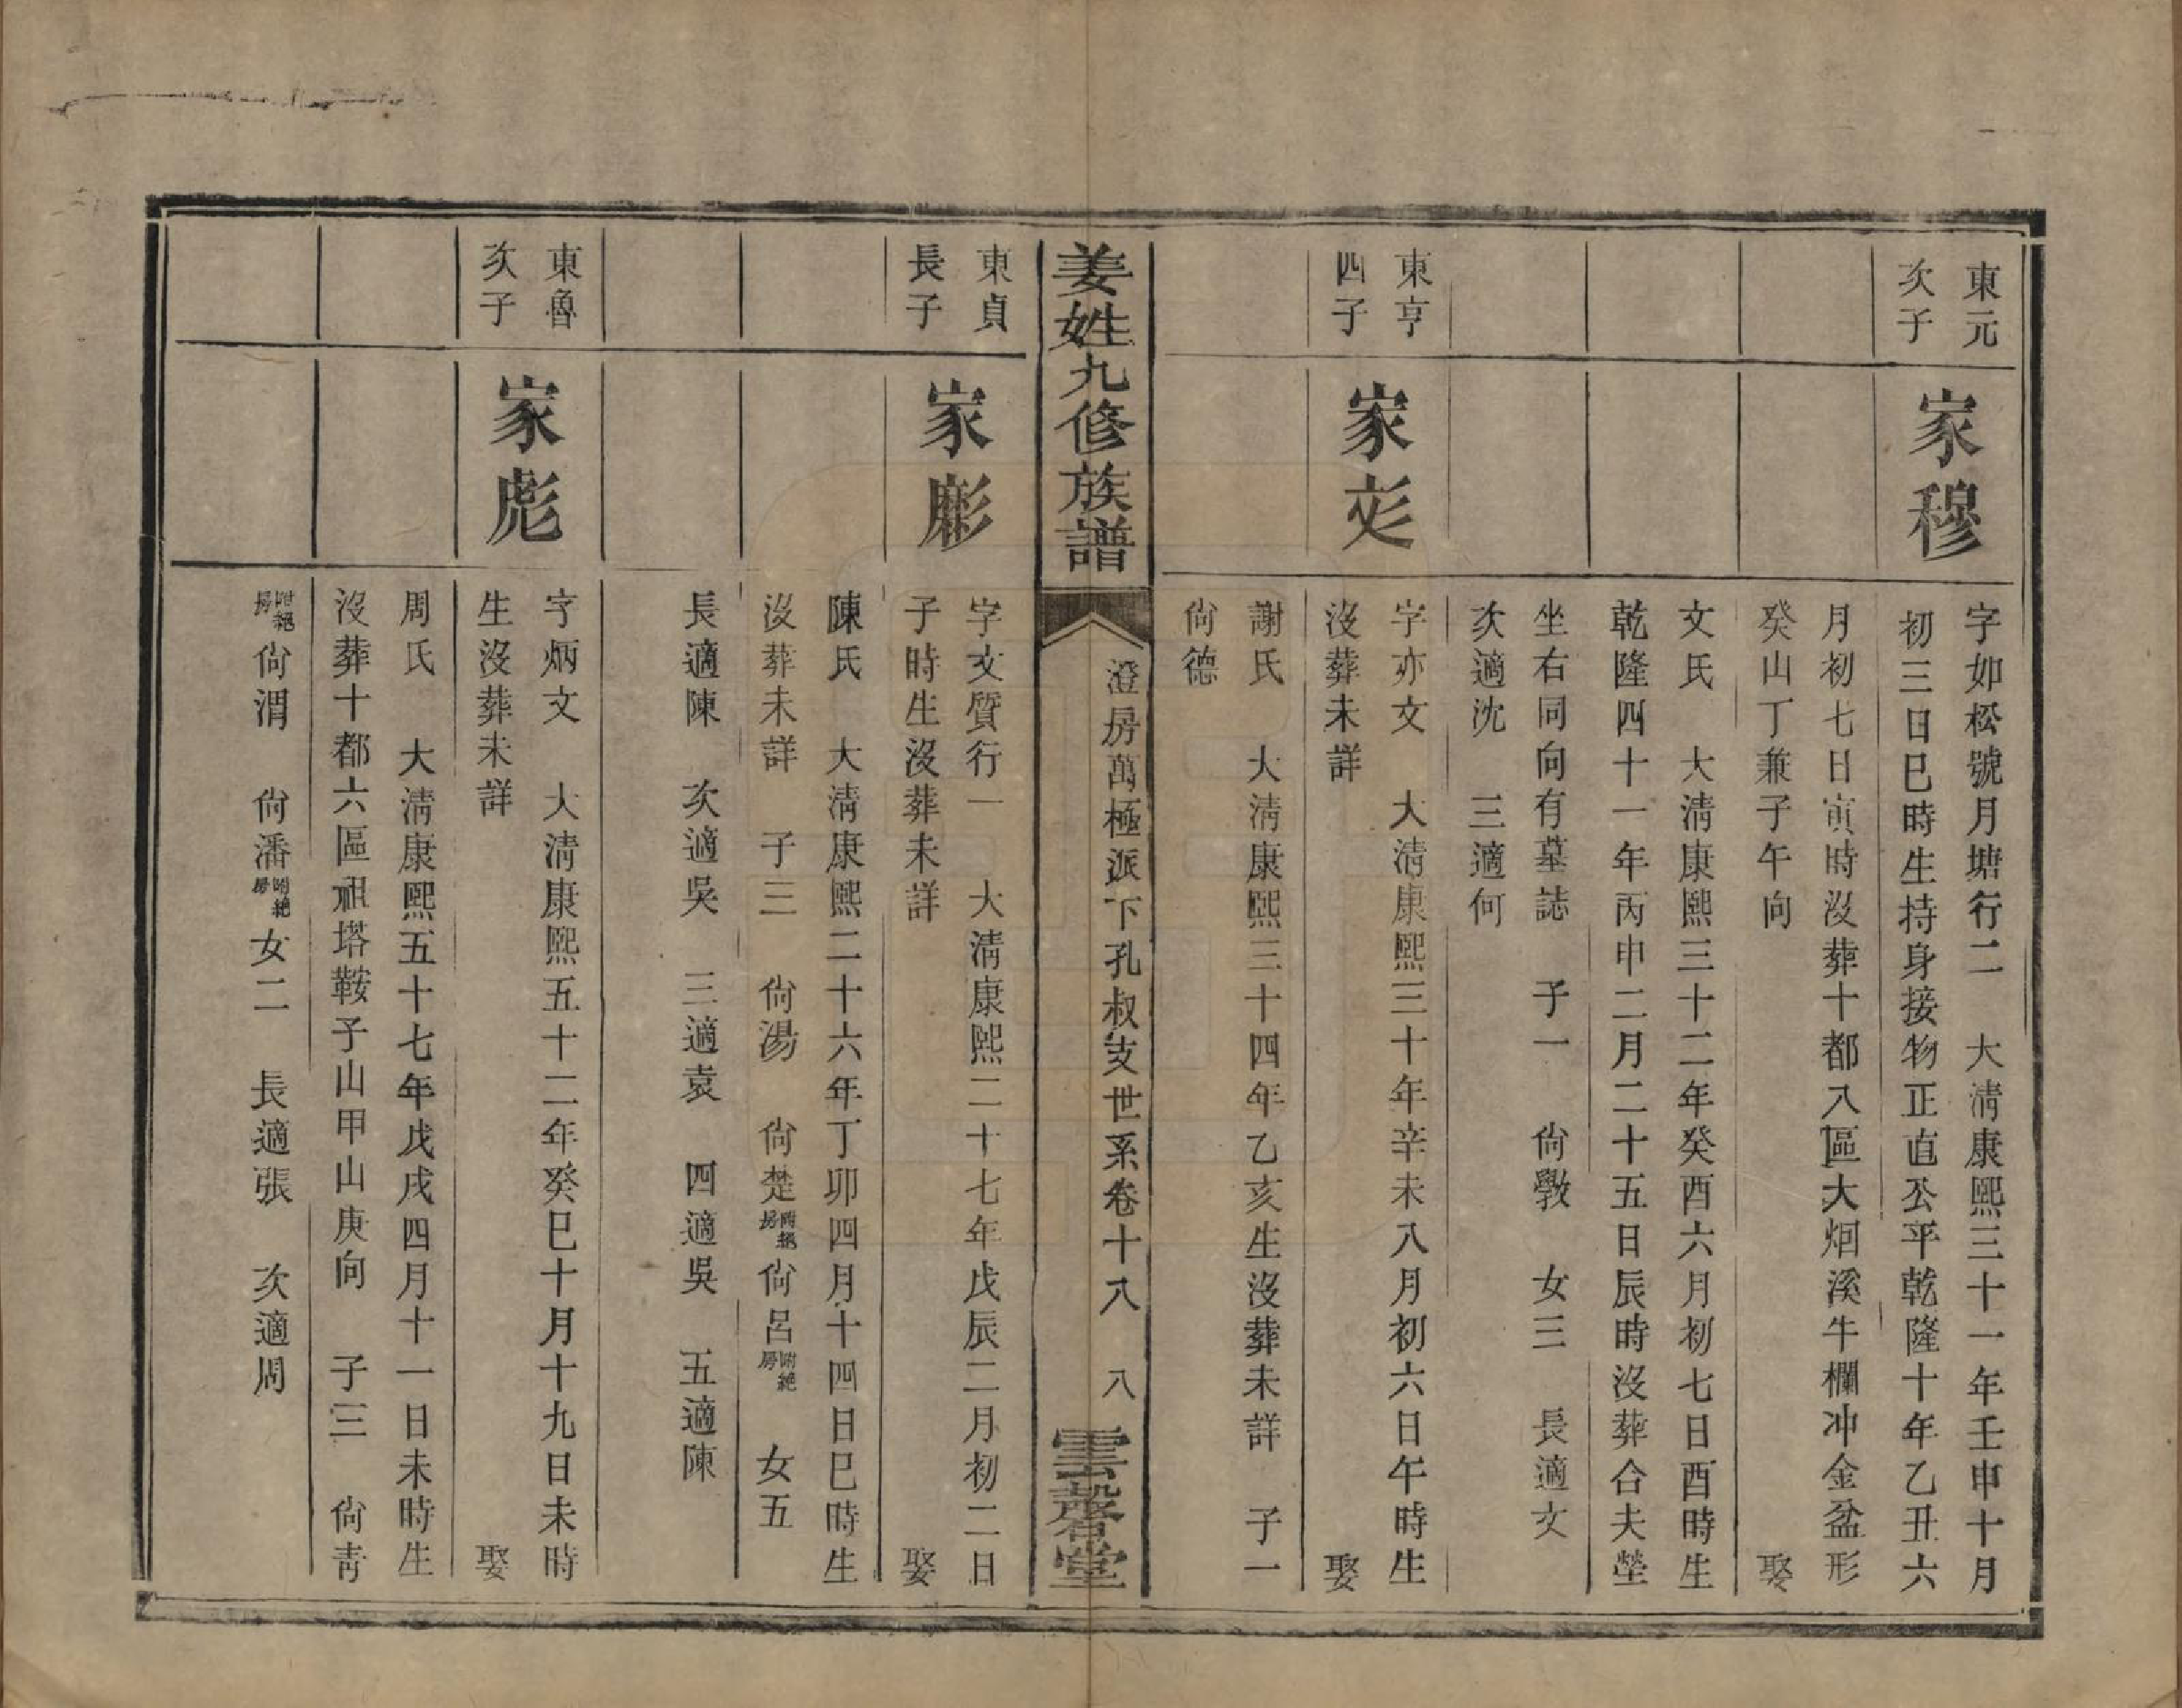 東元
次子
家穆
字如松號月塘行二　大清康熙三十一年壬申十月
初三日巳時生持身接物正直公平乾隆十年乙丑六
月初七日寅時沒葬十都八區大烟溪牛欄冲金盆形
癸山丁兼子午向　娶
文氏　大清康熙三十二年癸酉六月初七日酉時生
乾隆四十一年丙申二月二十五日辰時沒葬合夫塋
坐右同向有墓誌　子一　尙斆　女三　長適文
次適沈　三適何
東亨
四子
家彣
字亦文　大清康熙三十年辛未八月初六日午時生
沒葬未詳　娶
謝氏　大清康熙三十四年乙亥生沒葬未詳　子一
尙德
姜姓九修族譜
澄房萬極派下孔叔支世系卷十八　八
雲磬堂
東貞
長子
家彪
字文質行一　大清康熙二十七年戊辰二月初二日
子時生沒葬未詳　娶
陳氏　大清康熙二十六年丁卯四月十四日巳時生
沒葬未詳　子三　尙湯　尙楚附絕房尙呂附絕房　女五
長適陳　次適吳　三適袁　四適吳　五適陳
東魯
次子
家彪
字炳文　大清康熙五十二年癸巳十月十九日未時
生沒葬未詳　娶
周氏　大清康熙五十七年戊戌四月十一日未時生
沒葬十都六區祖塔鞍子山甲山庚向　子三　尙靑
附絕房　尙渭　尙潘附絕房女二　長適張　次適周